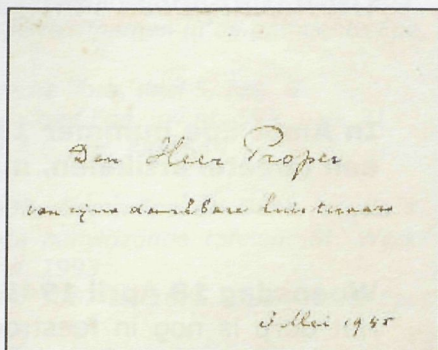 Den Heer Proper
van zijne dankbare luisteraars
5 Mei 1945